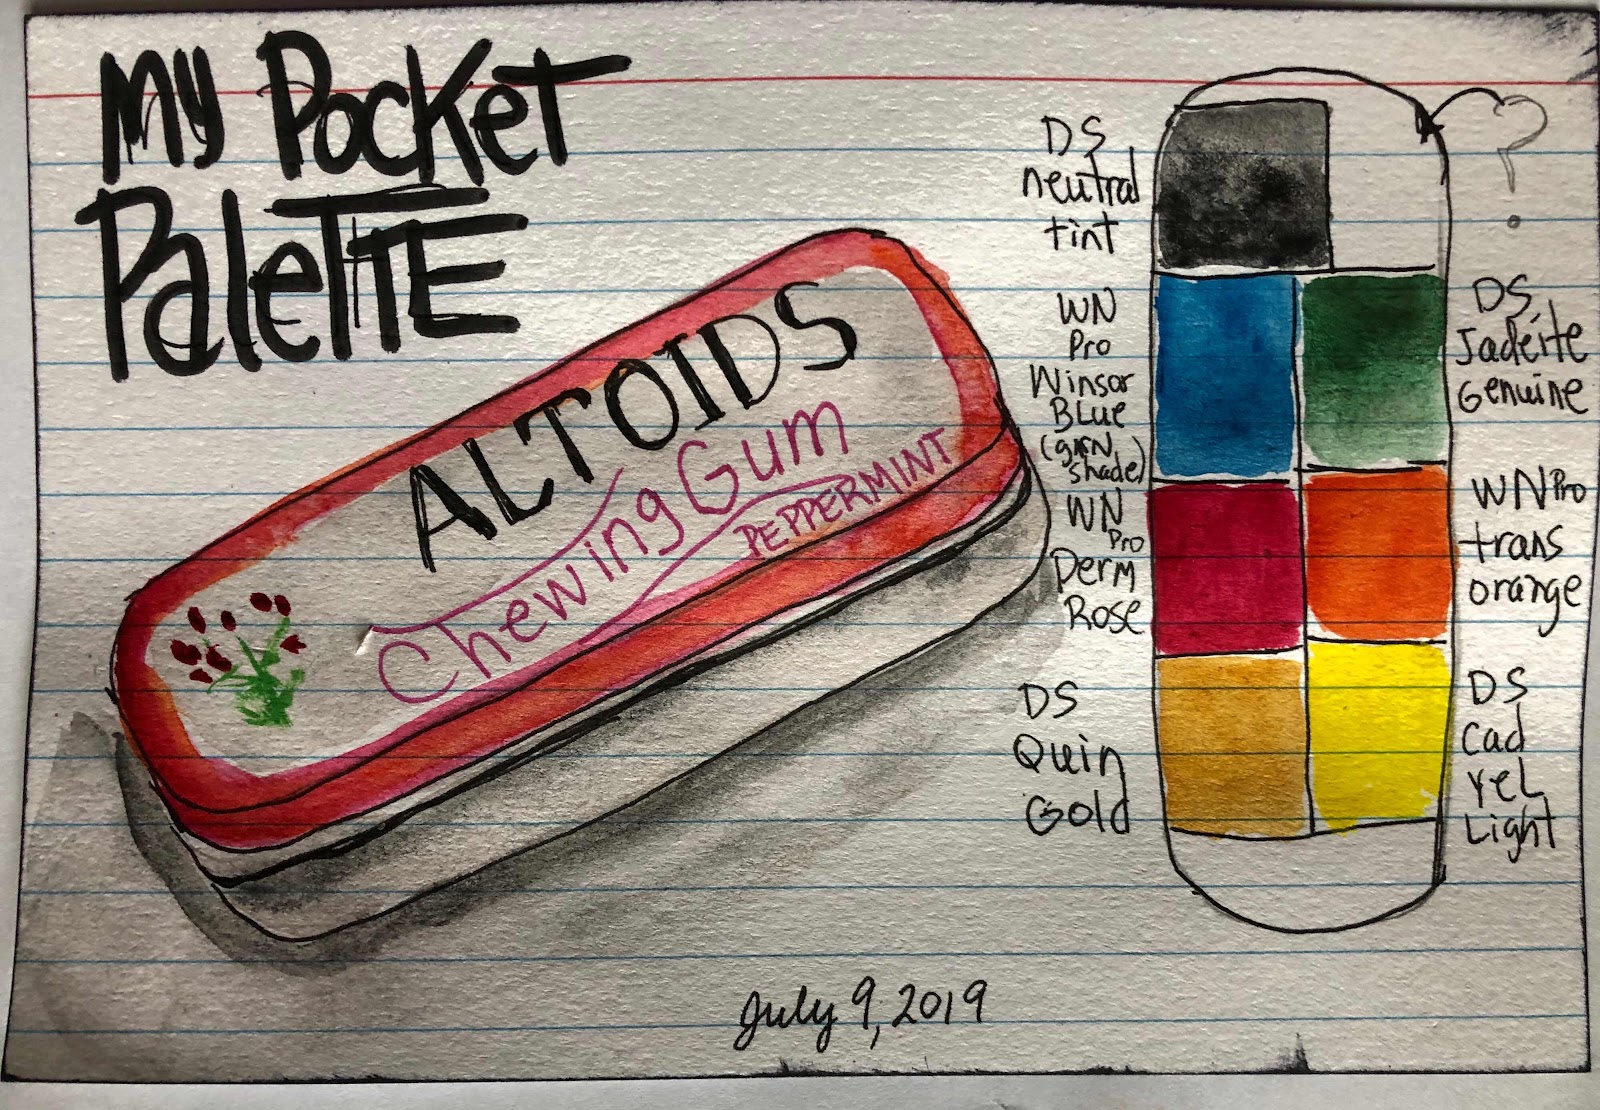 My Pocket
Palette
ALTOIDS
Chewing Gum
PEPPERMINT
DS
neutral
tint
?
WN
Pro
Winsor
Blue
(grn
shade)
DS
Jadeite
Genuine
WN
Pro
Perm
Rose
WN Pro
trans
orange
DS
Quin
Gold
DS
Cad
Yel
Light
July 9, 2019